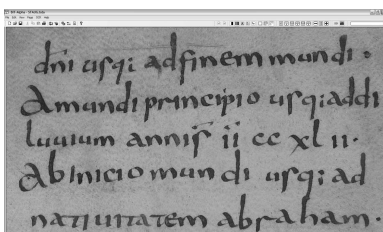 dn̄i usq; ad finem mundi :
A mundi principio usq; addi
luuium annis̄ ii cc xl ii·
Ab inicio mundi usq; ad
natiuitatem abraham·